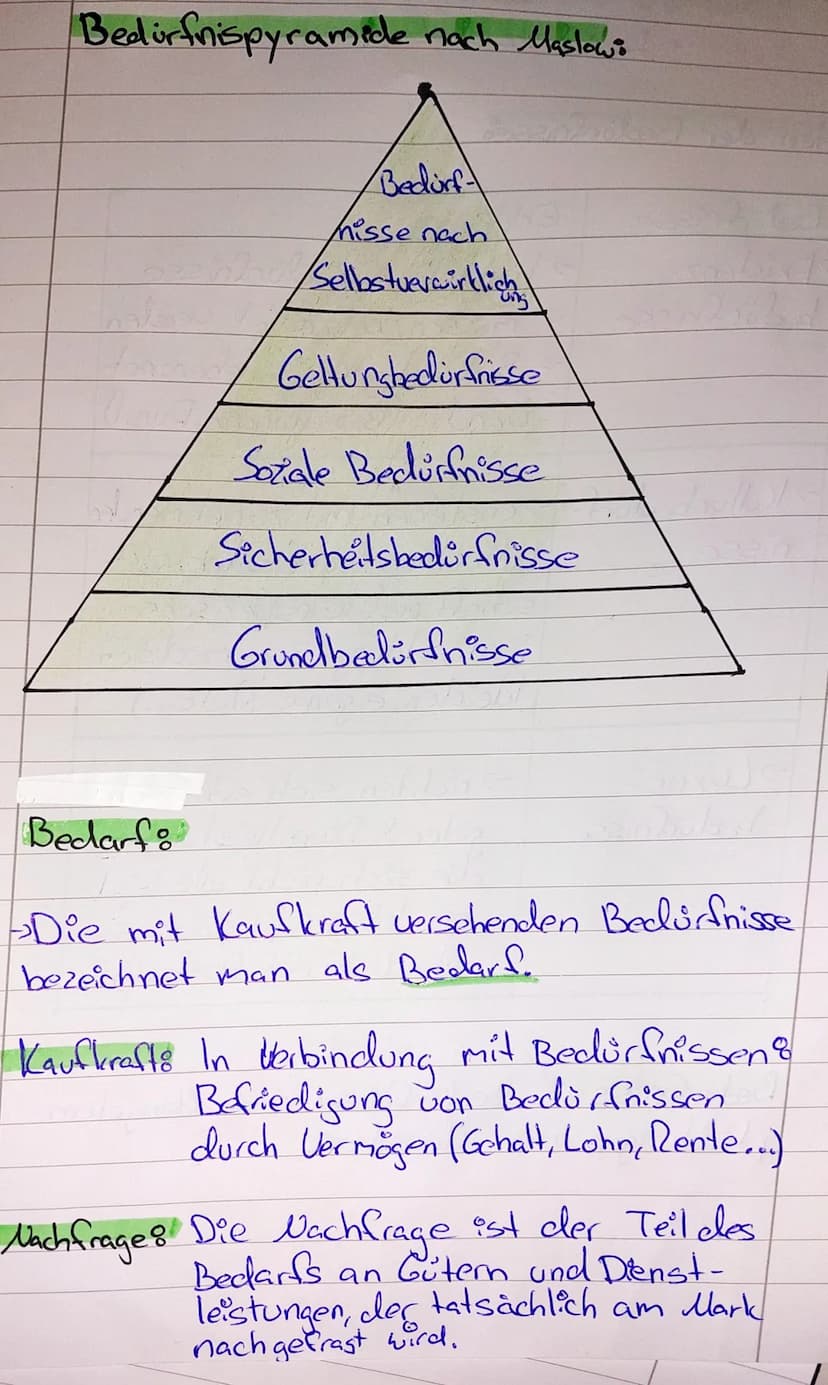 Bedürfnispyramide nach Maslow:
Bedürf-
nisse nach
Selbstverwirklich
ung
Geltungbedürfnisse
Soziale Bedürfnisse
Sicherheitsbedürfnisse
Grundbedürfnisse
Bedarf:
→Die mit Kaufkraft versehenden Bedürfnisse
bezeichnet man als Bedarf.
Kaufkraft: In Verbindung mit Bedürfnissen:
Befriedigung von Bedürfnissen
durch Vermögen (Gehalt, Lohn, Rente...)
Nachfrage: Die Nachfrage ist der Teil des
Bedarfs an Gütern und Dienst-
leistungen, der tatsächlich am Mark
nachgefragt wird.